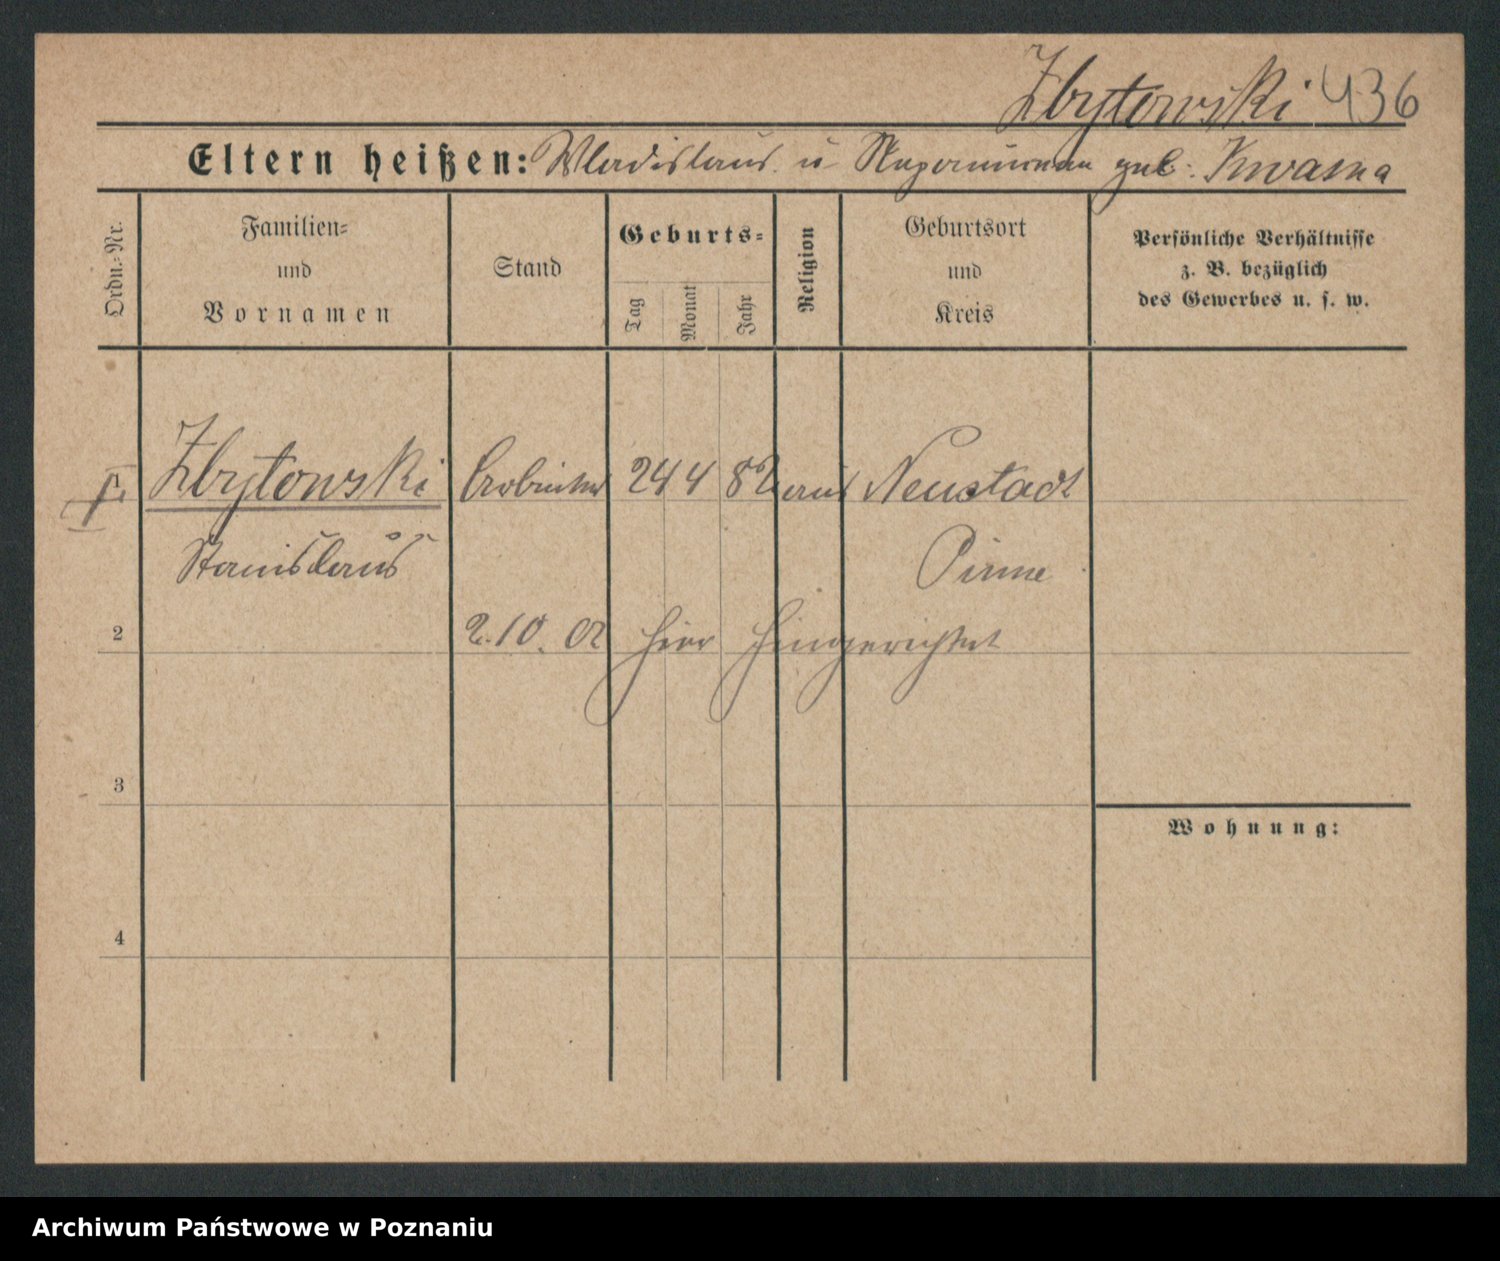 Zbytowski 436
Eltern heißen: Wladislaus u geb. Kwasna
Ordn.-Nr.
Familien-
und
Vornamen
Stand
Geburts-
Tag
Monat
Jahr
Religion
Geburtsort
und
Kreis
Persönliche Verhältnisse
z. B. bezüglich
des Gewerbes u. s. w.
Zbytowski Arbeiter 24 4 82 aus Neustadt
Stanislaus Pinne
2 2. 10. 02 hier hingerichtet
3
Wohnung:
4
Archiwum Państwowe w Poznaniu